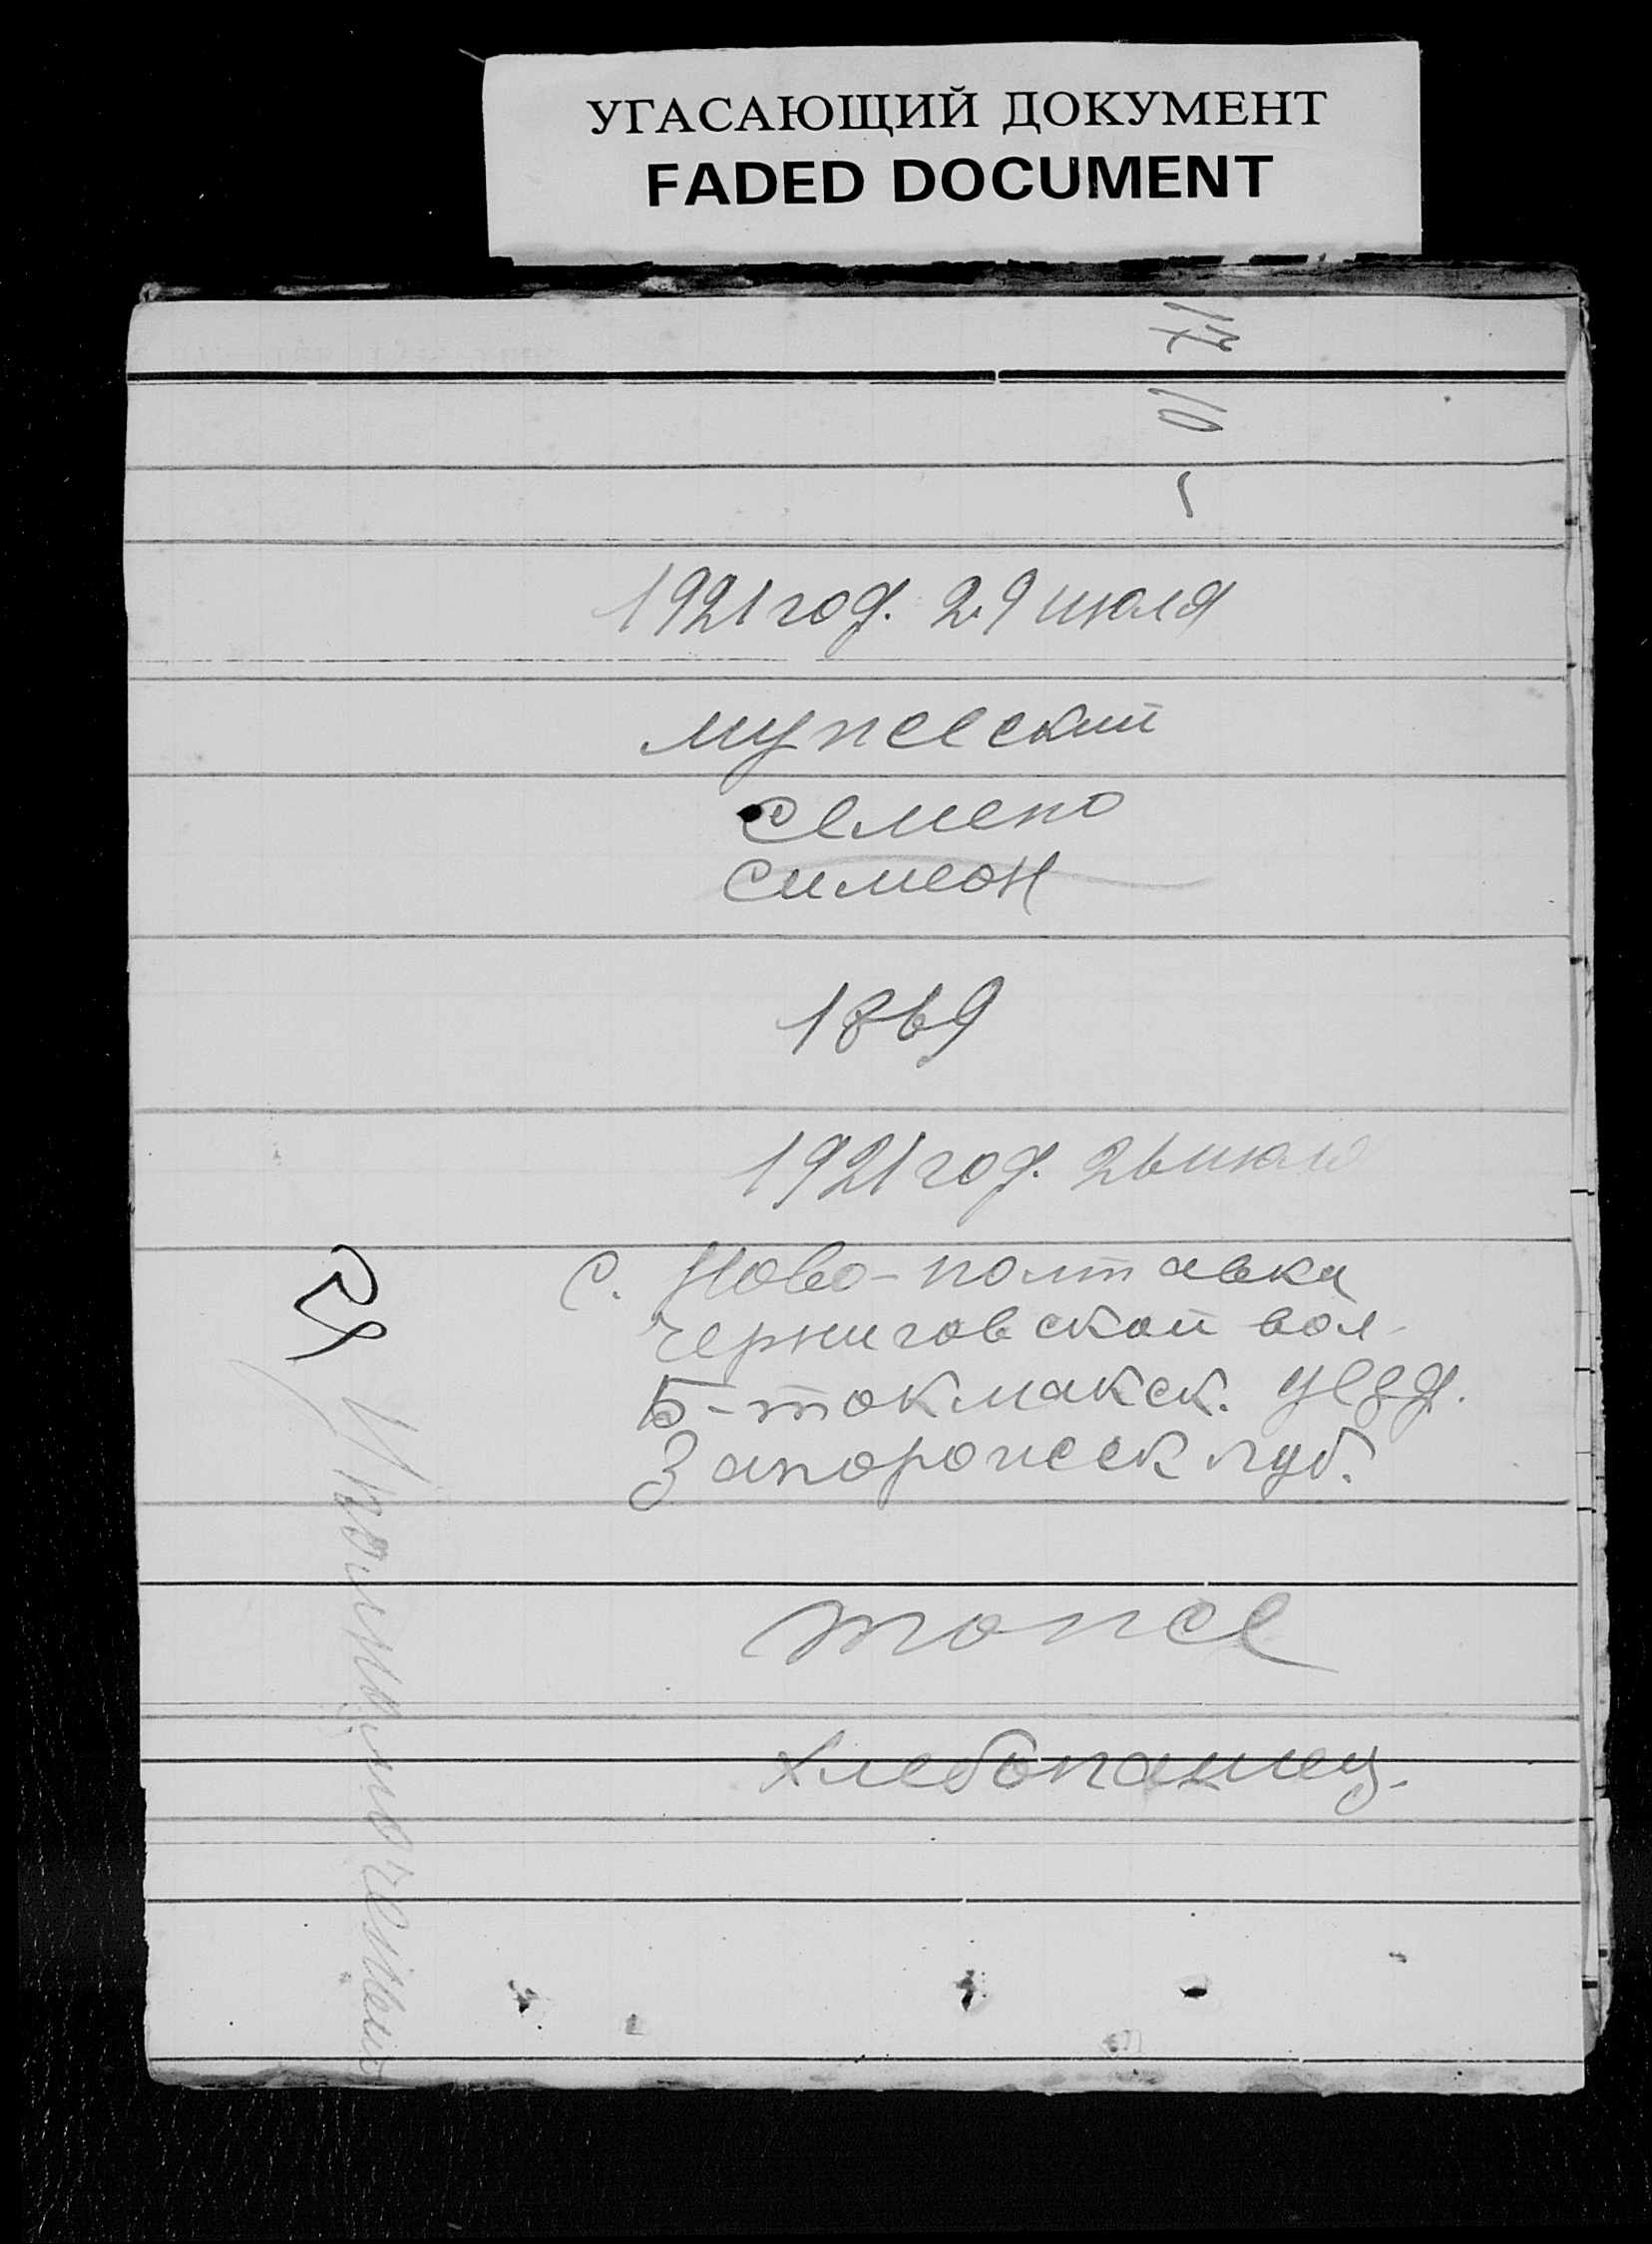 УГАСАЮЩИЙ ДОКУМЕНТ
FADED DOCUMENT
1921 год. 29 июля
мужеский
Семено
Симеон
1869
1921 год. 26 июля
с. Ново-полтавка
Черниговской вол.
Б-токмакск. уезд.
Запорожск губ.
тоже
хлебопашец.